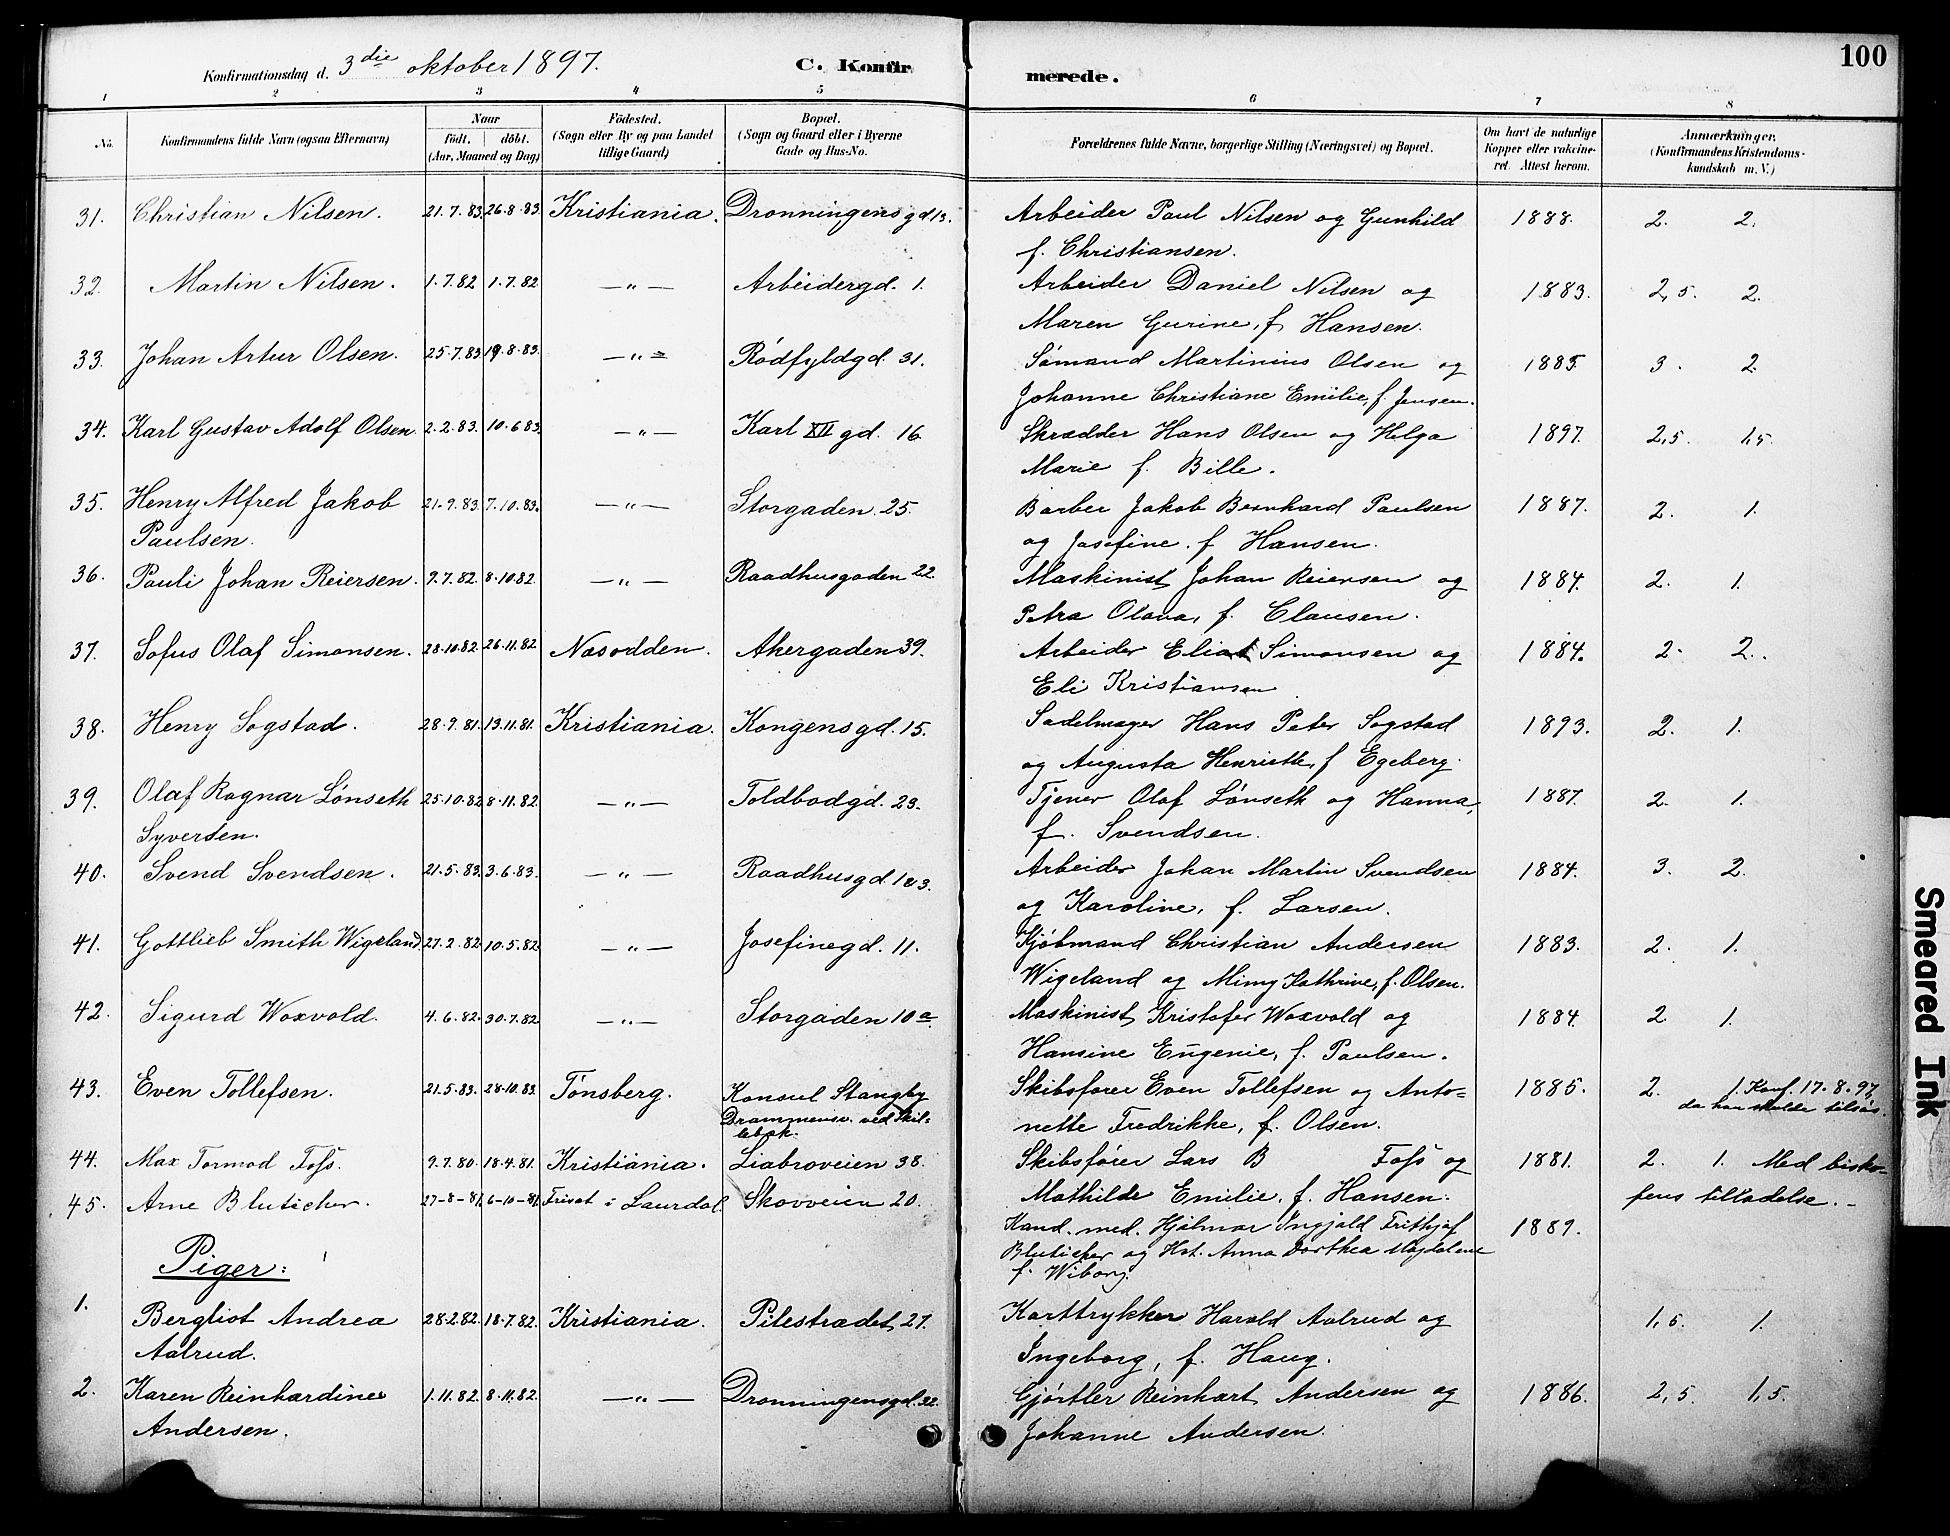 100
Konfirmationsdag d. 3die oktober 1897. C. Konfirmerede.
1 2 3 4 5 6 7 8
No. Konfirmandens fulde Navn (ogsaa Efternavn) Naar født. døbt. (Aar, Maaned og Dag) Fødested. (Sogn eller By og paa Landet tillige Gaard) Bopæl. (Sogn og Gaard eller i Byerne Gade og Hus-No. Forældrenes fulde Navne, borgerlige Stilling (Næringsvei) og Bopæl. Om havt de naturlige Kopper eller vakcineret. Attest herom. Anmærkninger. (Konfirmandens Kristendomskundskab m. V.)
31. Christian Nilsen. 21.7.83. 26.8.83. Kristiania. Dronningensgd 13. Arbeider Paul Nilsen og Gunhild 1888. 2. 2.
f. Christiansen.
32. Martin Nilsen. 1.7.82 1.7.82 —"— Arbeidergd. 1. Arbeider Daniel Nilsen og 1883. 2,5. 2.
Maren Gurine, f. Hansen.
33. Johan Artur Olsen. 25.7.83. 19.8.83. —"— Rødfyldgd. 31. Sømand Martinius Olsen og 1885. 3. 2.
Johanne Christiane Emilie, f. Jensen.
34. Karl Gustav Adolf Olsen. 2.2.83. 10.6.83. —"— Karl XII gd. 16. Skrædder Hans Olsen og Helga 1897. 2,5. 1,5.
Marie f. Bille.
35. Henry Alfred Jakob 21.9.83. 7.10.83. —"— Storgaden 25. Barber Jakob Bernhard Paulsen 1887. 2. 1.
Paulsen. og Josefine f. Hansen.
36. Pauli Johan Reiersen. 9.7.82. 8.10.82. —"— Raadhusgaden 22. Maskinist Johan Reiersen og 1884. 2. 1.
Petra Olava, f. Clausen.
37. Sofus Olaf Simonsen. 28.10.82. 26.11.82 Næsodden. Akergaden 39. Arbeider Elias Simonsen og 1884. 2. 2.
Eli Kristiansen
38. Henry Sogstad. 28.9.81. 13.11.81. Kristiania. Kongensgd. 15. Sadelmager Hans Peter Sogstad 1893. 2. 1.
og Augusta Henriette, f. Egeberg.
39. Olaf Ragnar Lønseth 25.10.82 8.11.82. —"— Toldbodgd. 23. Tjener Olaf Lønseth og Hanna, 1887. 2. 1.
Syversen. f. Svendsen.
40. Svend Svendsen. 21.5.83. 3.6.83. —"— Raadhusgd. Arbeider Johan Martin Svendsen 1884. 3. 2.
og Karoline, f. Larsen.
41. Gottlieb Smith Wigeland 27.2.82. 10.5.82. —"— Josefinegd. 11. Kjøbmand Christian Andersen 1883. 2. 1.
Wigeland og Mimy Kathrine, f. Olsen.
42. Sigurd Woxvold. 4.6.82. 30.7.82. —"— Storgaden 10a. Maskinist Kristofer Woxvold og 1884. 2. 1.
Hansine Eugenie, f. Paulsen.
43. Even Tollefsen. 21.5.83. 28.10.83. Tønsberg. Konsul Stangby Skibsfører Even Tollefsen og Anto= 1885. 2. 1. Konf. 17.8.97,
Drammensv. ved Skil=
lebæk. nette Fredrikke, f. Olsen. da han skulde tilsøs.
44. Max Tormod Foss. 9.7.80. 18.4.81. Kristiania. Liabroveien 38. Skibsfører Lars B Foss og 1881. 2. 1. Med bisko-
Mathilde Emilie, f. Hansen. pens tilladelse.
45. Arne Bluticher. 27-8-81. 6-10-81. i Laurdal. Skovveien 20. Kand. med. Hjalmar Ingjald Frithjof 1889.
Bluticher og Hst. Anna Dorthea Magdalene
f. Wiborg.
Piger:
1. Bergliot Andrea 28.2.82. 18.7.82. Kristiania. Pilestrædet 27. Karttrykker Harald Aalrud og 1,5. 1.
Aalrud. Ingeborg, f. Haug.
2. Karen Reinhardine 1.11.82. 8.11.82. —"— Dronningensgd. 32. Gjørtler Reinhart Andersen og 1886. 2,5. 1,5.
Andersen. Johanne Andersen.
Smeared Ink